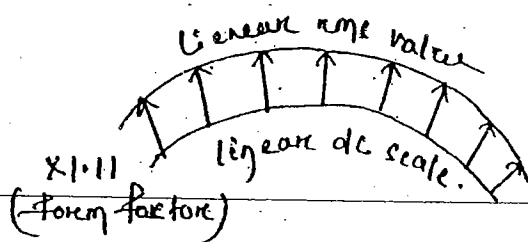 Linear rms value
linear dc scale.
X1.11
(form factor)